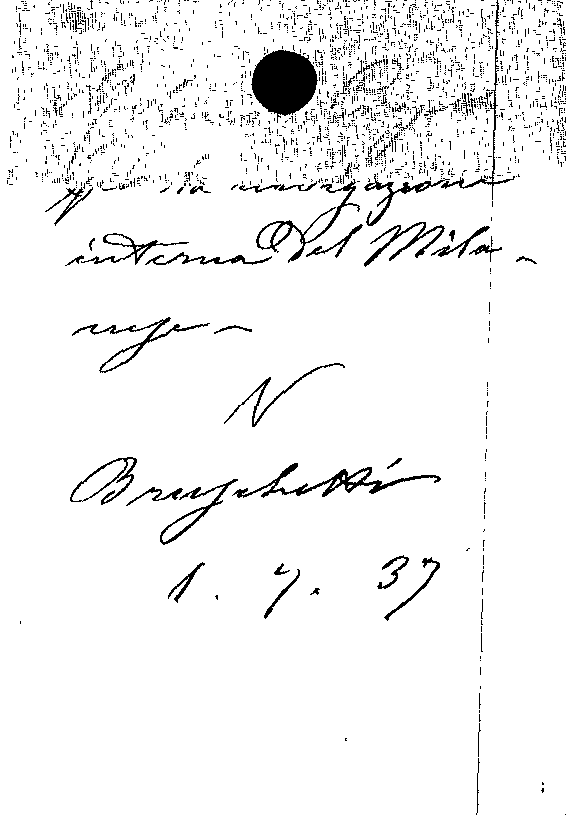 navigazione
interna del Mila-
nese -
N
Bruschetti
1. 7. 37